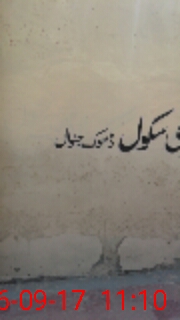 سکول ڈھوک جنواں
6-09-17 11:10